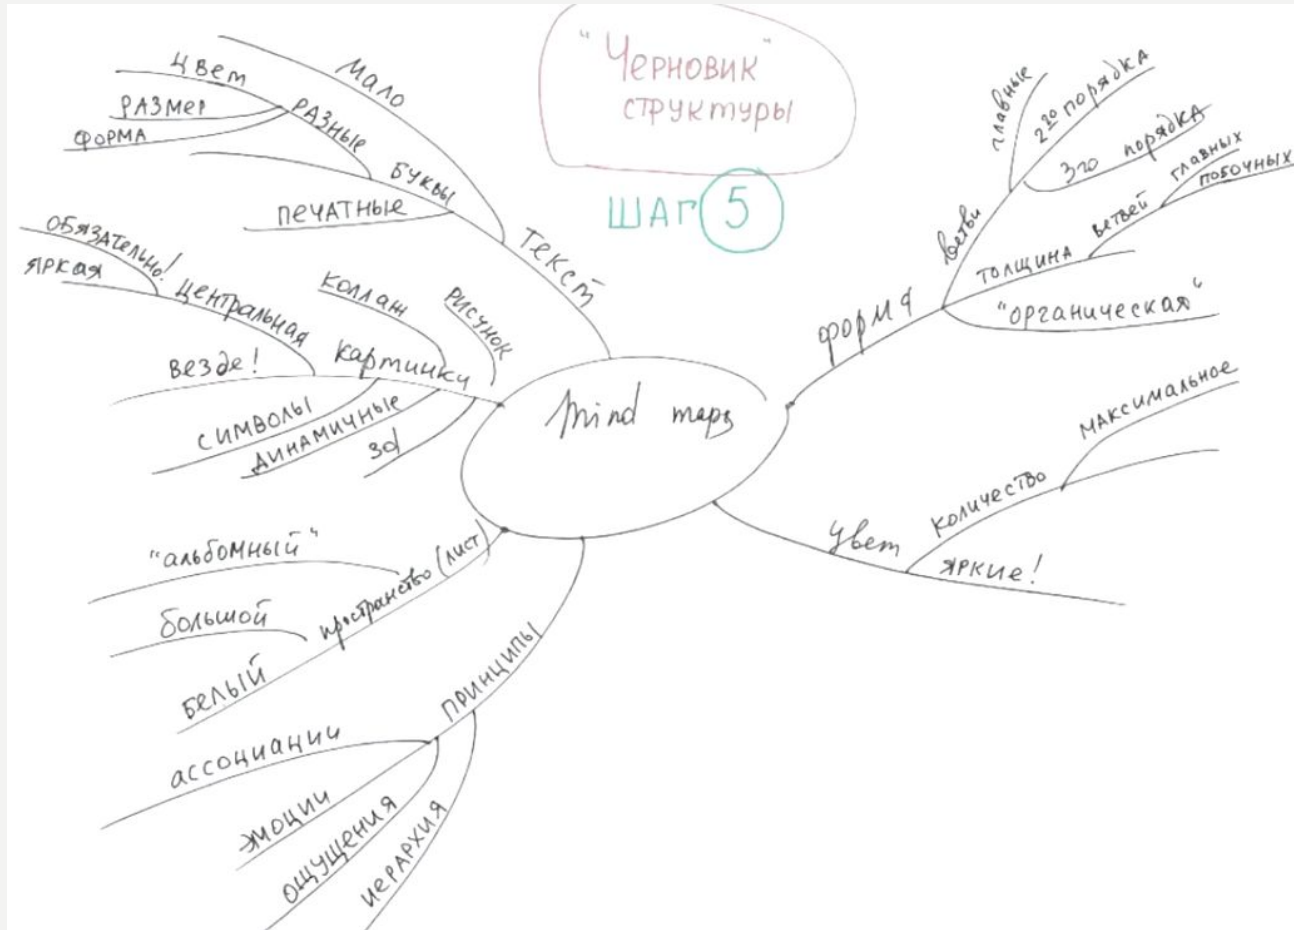 "Черновик"
структуры
ШАГ 5
Mind maps
текст
мало
буквы
РАЗНЫЕ
цвет
РАЗМЕР
ФОРМА
печатные
картинки
рисунок
коллаж
центральная
ОБЯЗАТЕЛЬНО!
яркая
везде!
символы
динамичные
3d
пространство (лист)
"альбомный"
большой
белый
принципы
ассоциации
эмоции
ощущения
иерархия
форма
ветви
главные
2го порядка
3го порядка
толщина
ветвей
главных
побочных
"органическая"
цвет
количество
максимальное
яркие!